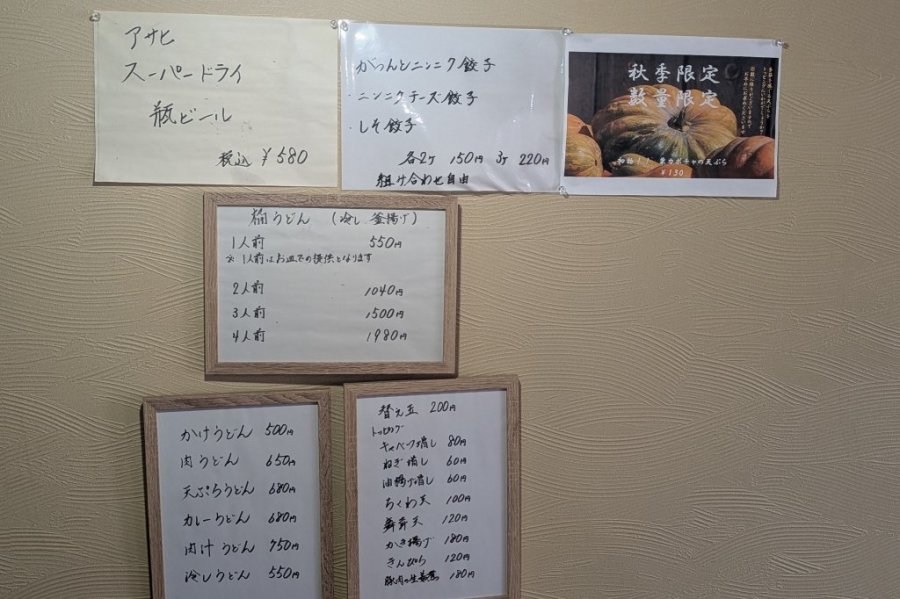 アサヒ
スーパードライ
瓶ビール
税込 ¥580
がっつんとニンニク餃子
・ニンニクチーズ餃子
・しそ餃子
各2ケ 150円 3ケ 220円
組み合わせ自由
秋季限定
数量限定
¥130
桶うどん (冷し、釜揚げ)
1人前 550円
※1人前はお皿での提供となります
2人前 1040円
3人前 1500円
4人前 1980円
かけうどん 500円
肉うどん 650円
天ぷらうどん 680円
カレーうどん 680円
肉汁うどん 750円
冷しうどん 550円
替え玉 200円
トッピング
キャベツ増し 80円
ねぎ増し 60円
油揚げ増し 60円
ちくわ天 100円
舞茸天 120円
かき揚げ 180円
きんぴら 120円
豚肉の生姜焼 180円